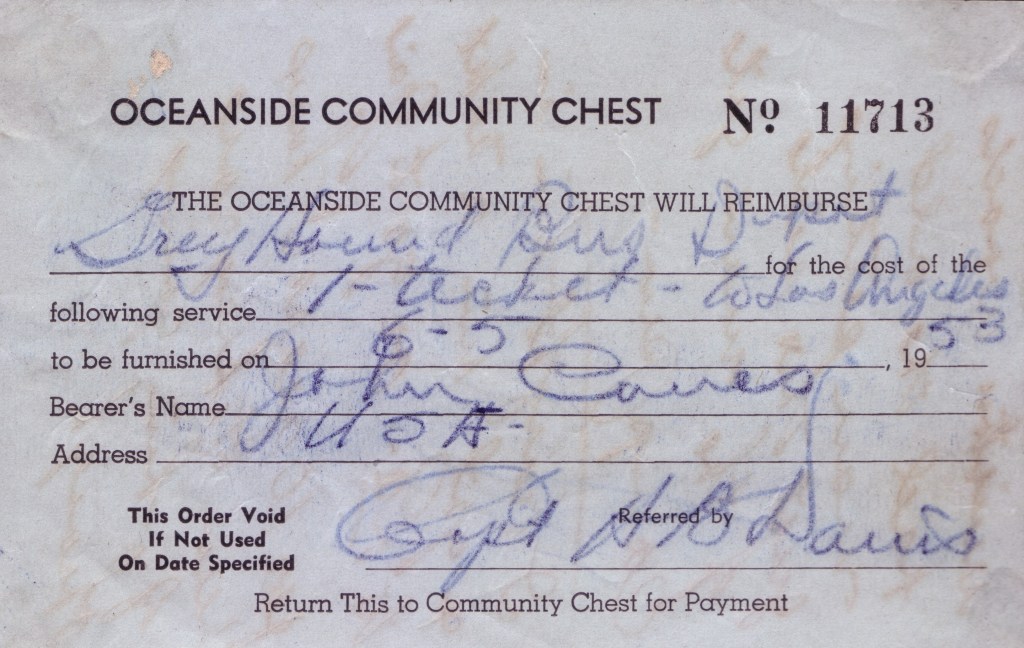 OCEANSIDE COMMUNITY CHEST Nº 11713
THE OCEANSIDE COMMUNITY CHEST WILL REIMBURSE
Grey Hound Bus Depot for the cost of the
following service 1 - ticket - to Los Angeles
to be furnished on 6-5, 19 53
Bearer's Name John
Address USA-
This Order Void
If Not Used
On Date Specified
Referred by Capt H B Davis
Return This to Community Chest for Payment